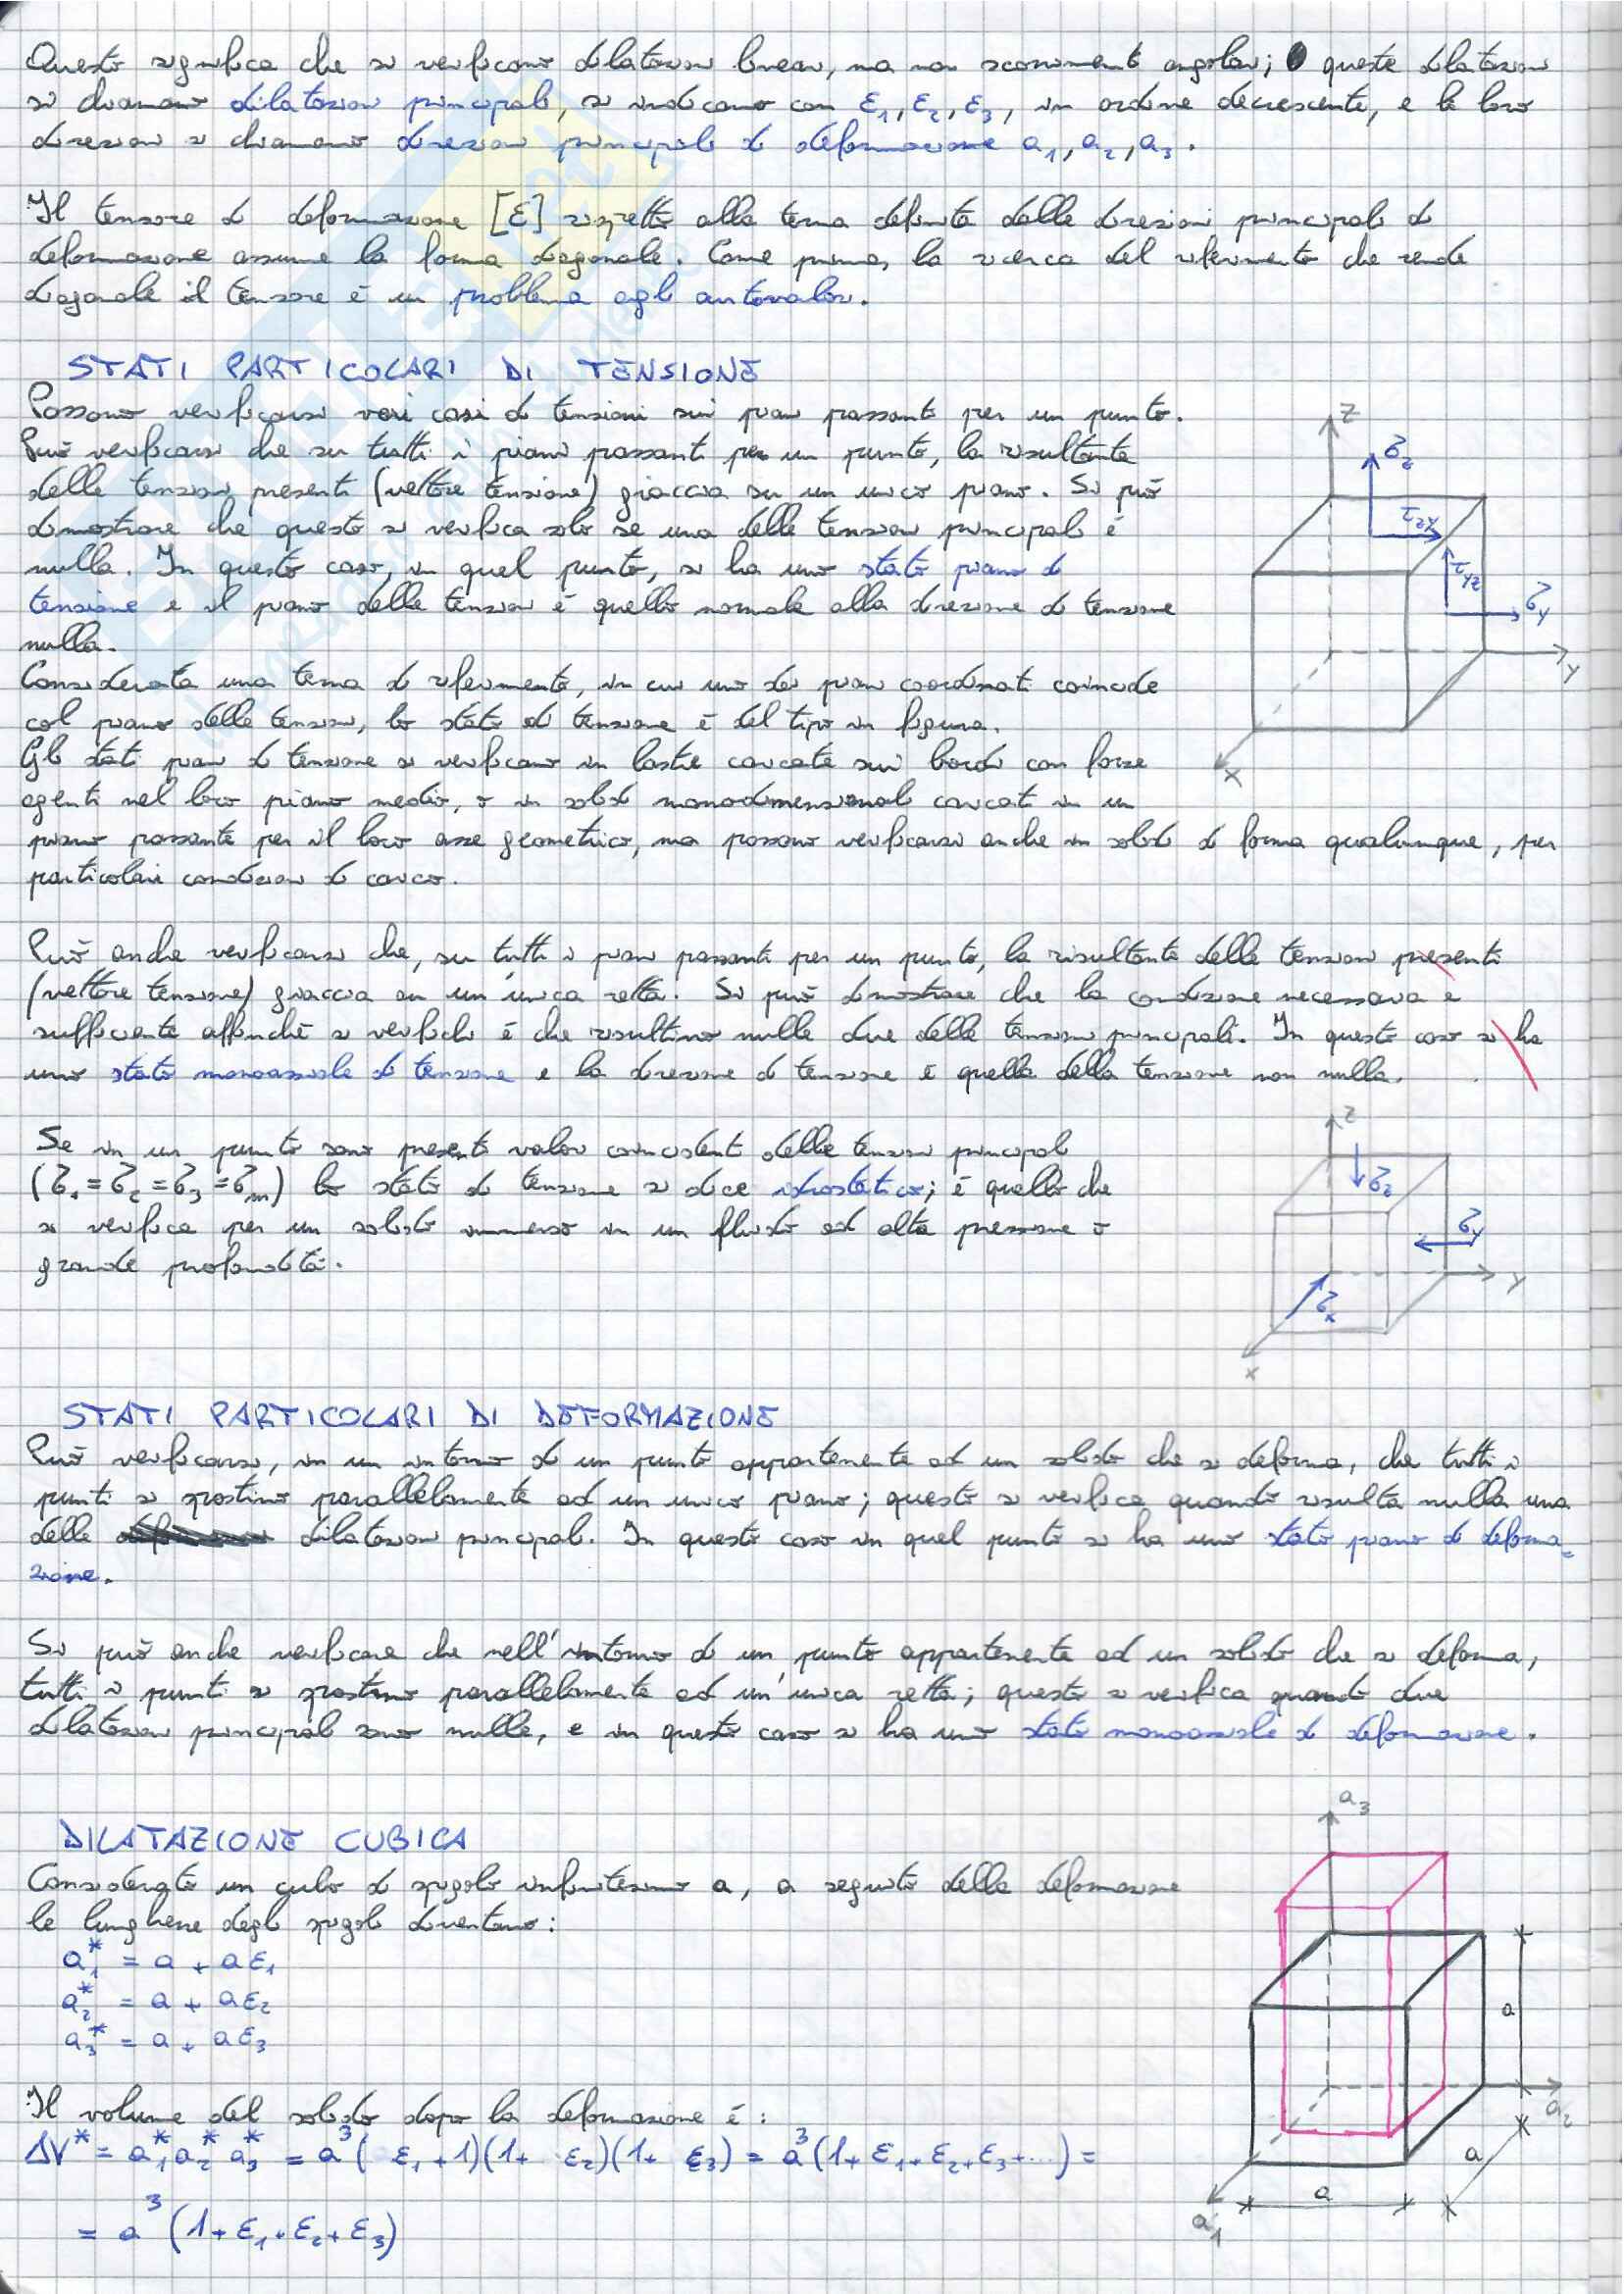 Questo significa che si verificano dilatazioni lineari, ma non scorrimenti angolari; queste dilatazioni
si chiamano dilatazioni principali, si indicano con ε₁, ε₂, ε₃, in ordine decrescente, e le loro
direzioni si chiamano direzioni principali di deformazione a₁, a₂, a₃.
Il tensore di deformazione [ε] rispetto alla terna definita dalle direzioni principali di
deformazione assume la forma diagonale. Come prima, la ricerca del riferimento che rende
diagonale il tensore è un problema agli autovalori.
STATI PARTICOLARI DI TENSIONE
Possono verificarsi vari casi di tensioni sui piani passanti per un punto.
Può verificarsi che su tutti i piani passanti per un punto, la risultante
delle tensioni presenti (vettore tensione) giaccia su un unico piano. Si può
dimostrare che questo si verifica solo se una delle tensioni principali è
nulla. In questo caso, in quel punto, si ha uno stato piano di
tensione e il piano delle tensioni è quello normale alla direzione di tensione
nulla.
Considerata una terna di riferimento, in cui uno dei piani coordinati coincide
col piano delle tensioni, lo stato di tensione è del tipo in figura.
Gli stati piani di tensione si verificano in lastre caricate sui bordi con forze
agenti nel loro piano medio, o in solidi monodimensionali caricati in un
piano passante per il loro asse geometrico, ma possono verificarsi anche in solidi di forma qualunque, per
particolari condizioni di carico.
z
σz
τzy
τyz
σy
y
x
Può anche verificarsi che, su tutti i piani passanti per un punto, la risultante delle tensioni presenti
(vettore tensione) giaccia su un'unica retta. Si può dimostrare che la condizione necessaria e
sufficiente affinché si verifichi è che risultino nulle due delle tensioni principali. In questo caso si ha
uno stato monoassiale di tensione e la direzione di tensione è quella della tensione non nulla.
Se in un punto sono presenti valori coincidenti delle tensioni principali
(σ₁=σ₂=σ₃=σm) lo stato di tensione si dice idrostatico; è quello che
si verifica per un solido immerso in un fluido ad alta pressione o
grande profondità.
z
σz
σy
y
σx
x
STATI PARTICOLARI DI DEFORMAZIONE
Può verificarsi, in un intorno di un punto appartenente ad un solido che si deforma, che tutti i
punti si spostino parallelamente ad un unico piano; questo si verifica quando risulta nulla una
delle dilatazioni principali. In questo caso in quel punto si ha uno stato piano di deforma=
zione.
Si può anche verificare che nell'intorno di un punto appartenente ad un solido che si deforma,
tutti i punti si spostino parallelamente ad un'unica retta; questo si verifica quando due
dilatazioni principali sono nulle, e in questo caso si ha uno stato monoassiale di deformazione.
DILATAZIONE CUBICA
Considerato un cubo di spigolo infinitesimo a, a seguito della deformazione
le lunghezze degli spigoli diventano:
a₁* = a + aε₁
a₂* = a + aε₂
a₃* = a + aε₃
Il volume del solido dopo la deformazione è:
ΔV* = a₁* a₂* a₃* = a³(ε₁+1)(1+ε₂)(1+ε₃) = a³(1+ε₁+ε₂+ε₃+...) =
= a³(1+ε₁+ε₂+ε₃)
a₃
a
a₂
a
a
a₁